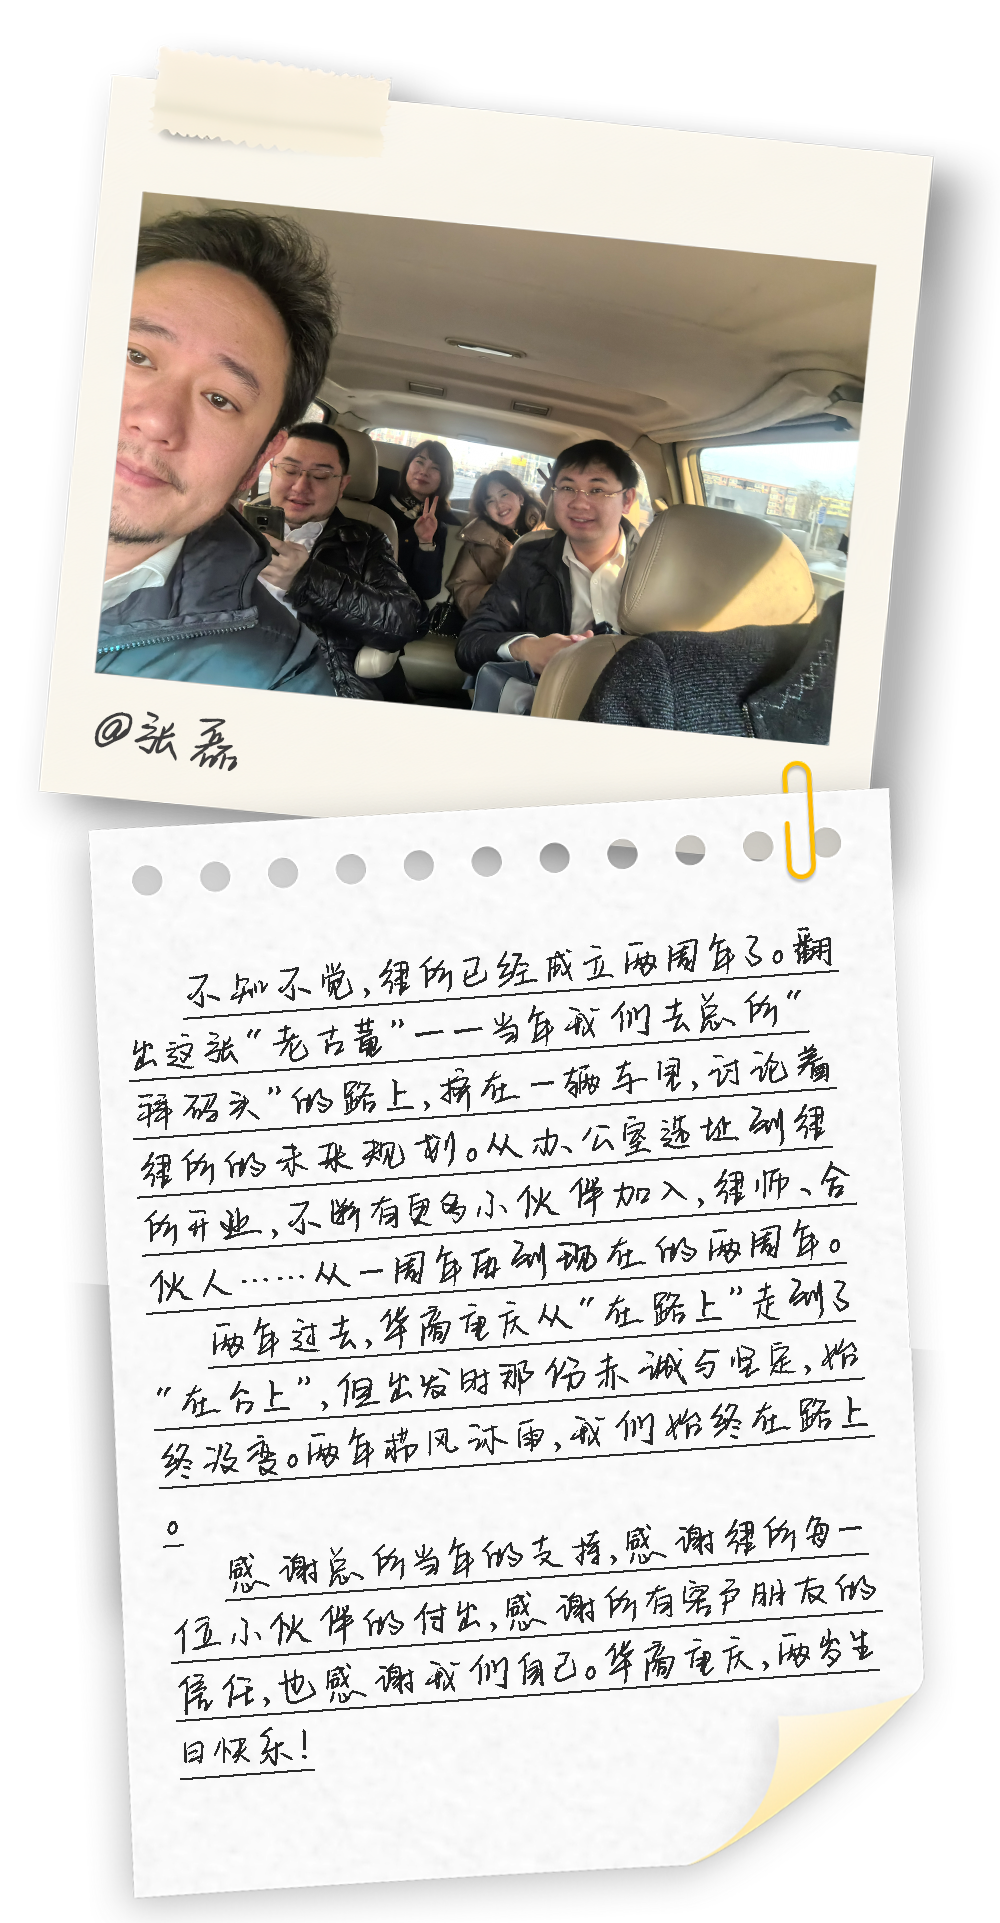 @张磊
不知不觉，律所已经成立两周年了。翻
出这张“老古董”——当年我们去总所“
拜码头”的路上，挤在一辆车里，讨论着
律所的未来规划。从办公室选址到律
所开业，不断有更多小伙伴加入，律师、合
伙人……从一周年再到现在的两周年。
两年过去，华商重庆从“在路上”走到了
“在台上”，但出发时那份赤诚与坚定，始
终没变。两年栉风沐雨，我们始终在路上
。
感谢总所当年的支持，感谢律所每一
位小伙伴的付出，感谢所有客户朋友的
信任，也感谢我们自己。华商重庆，两岁生
日快乐！